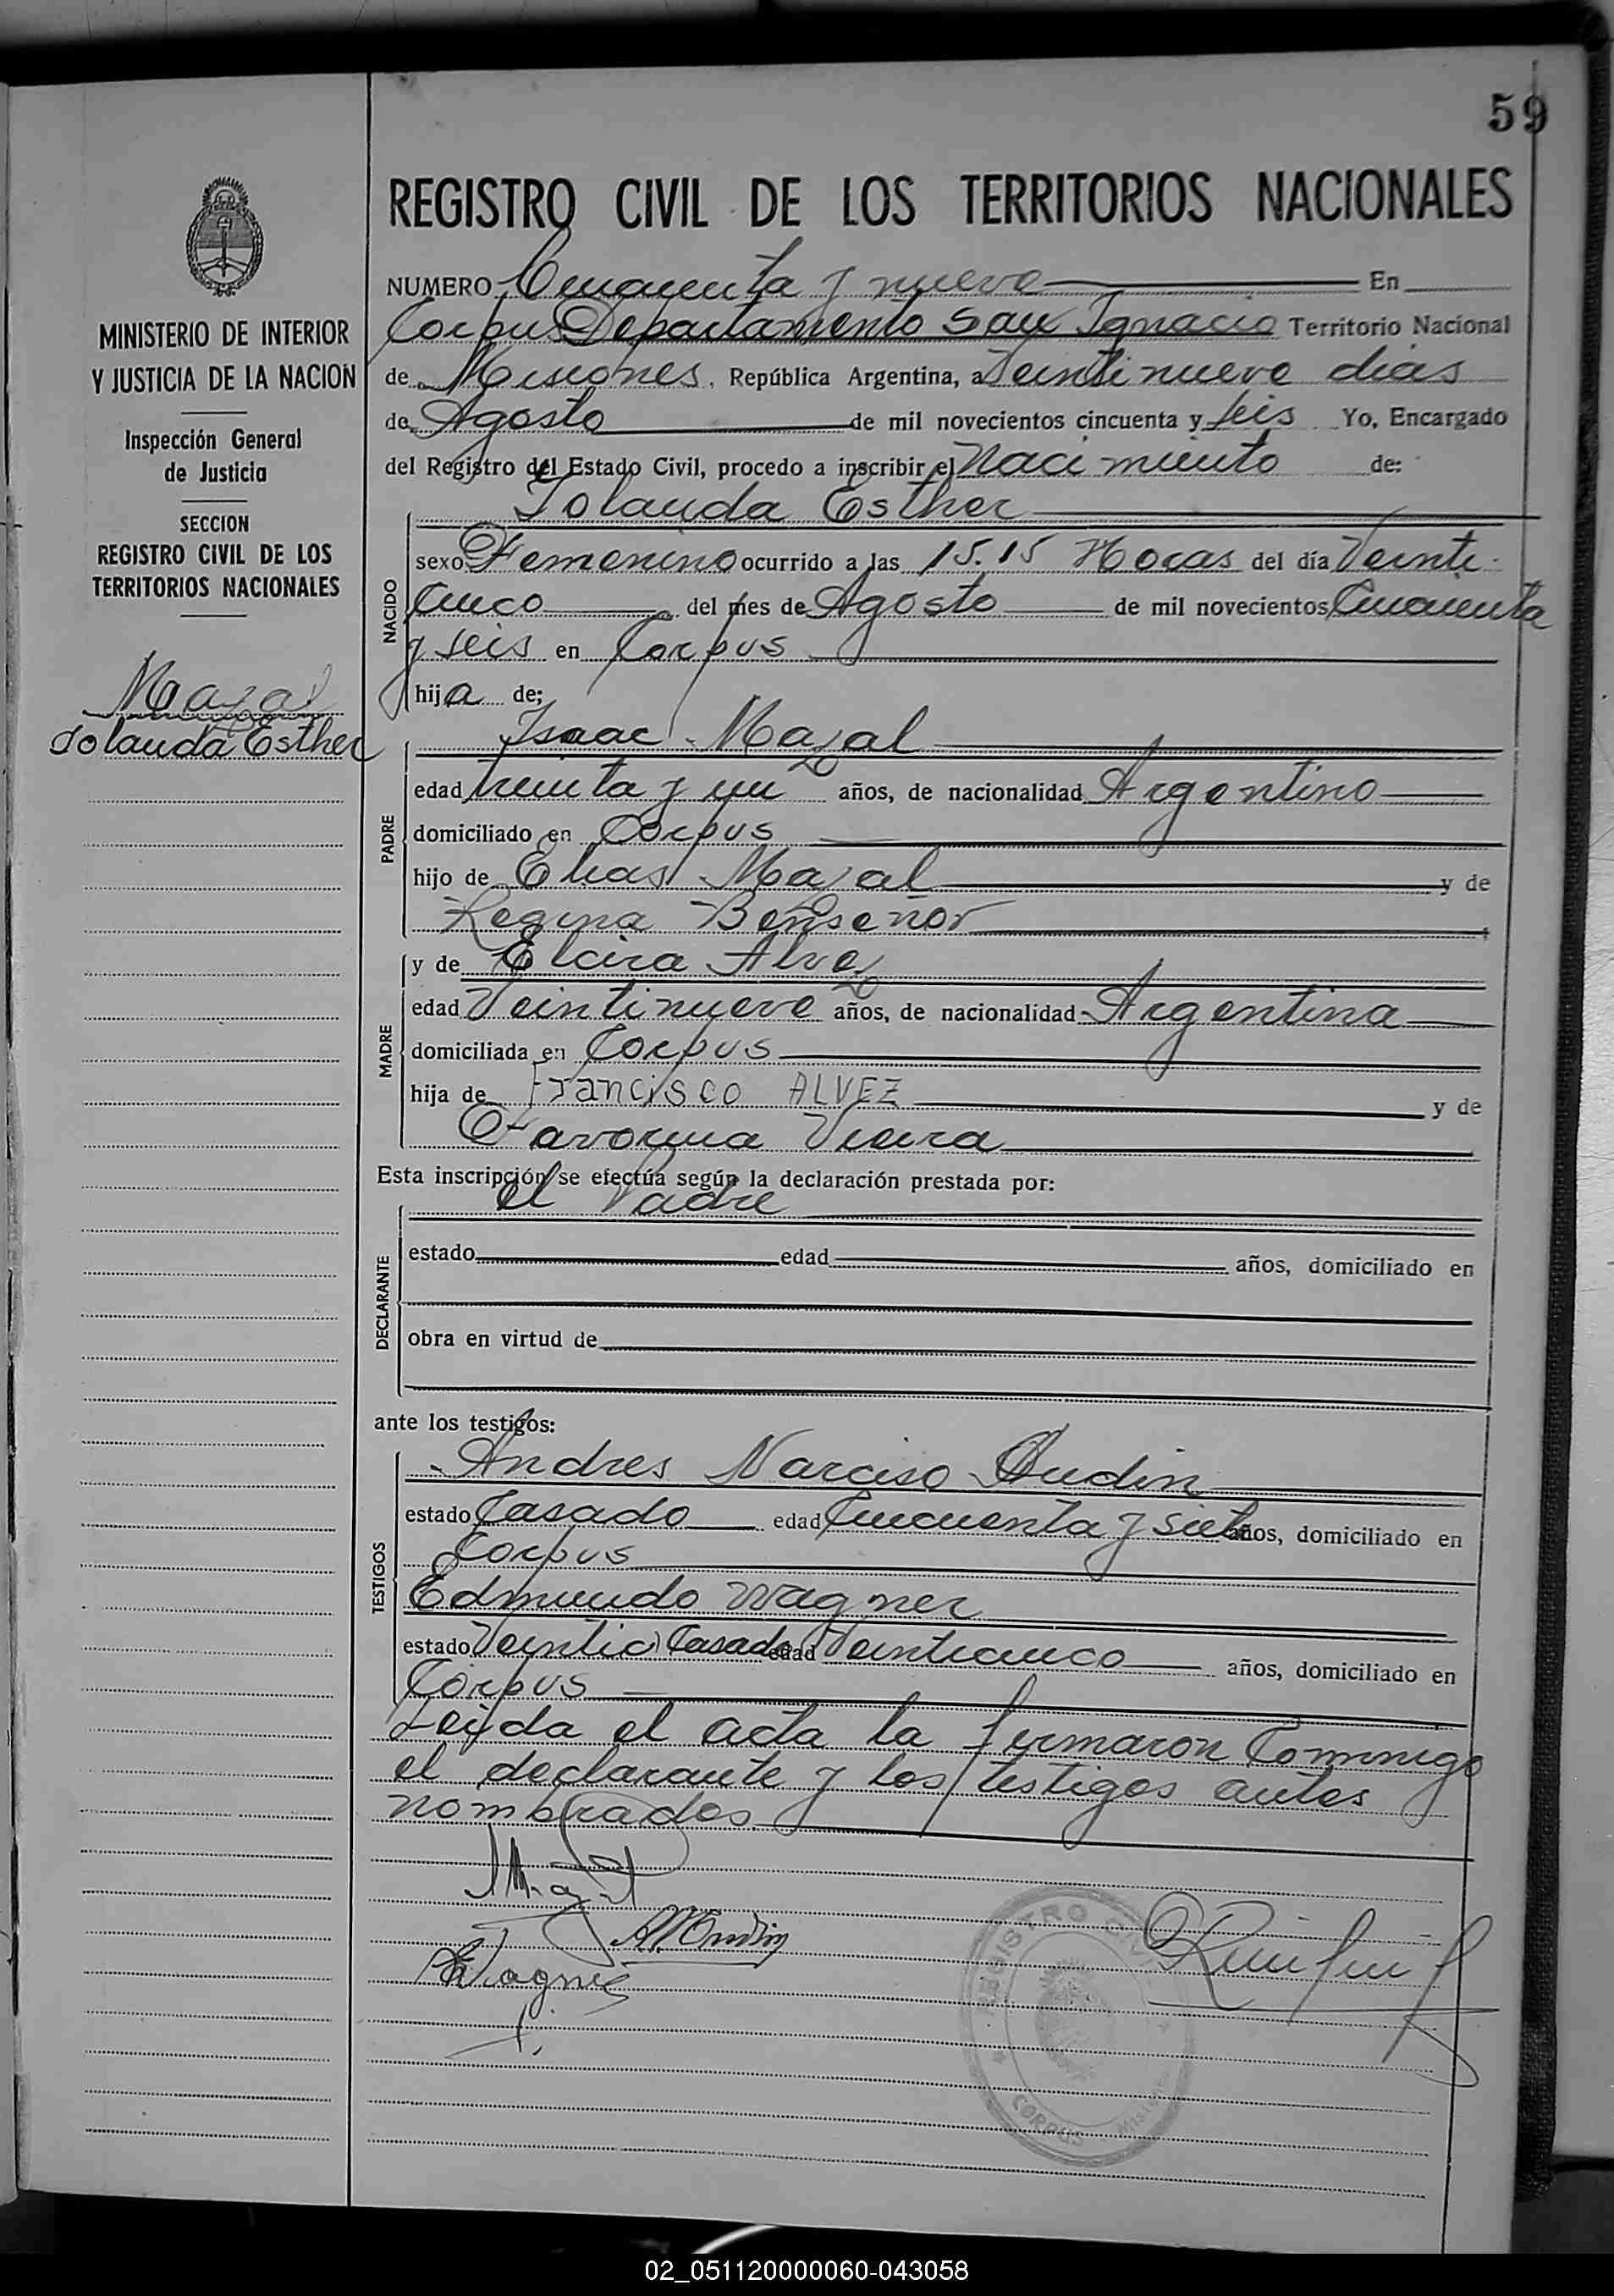 59
REGISTRO CIVIL DE LOS TERRITORIOS NACIONALES
MINISTERIO DE INTERIOR
Y JUSTICIA DE LA NACION
Inspección General
de Justicia
SECCION
REGISTRO CIVIL DE LOS
TERRITORIOS NACIONALES
Mazal
Iolanda Esther
NUMERO Cincuenta y nueve En
Corpus Departamento San Ignacio Territorio Nacional
de Misiones, República Argentina, a Veintinueve dias
de Agosto de mil novecientos cincuenta y seis Yo, Encargado
del Registro del Estado Civil, procedo a inscribir el Nacimiento de:
Iolanda Esther
NACIDO
sexo Femenino ocurrido a las 15.15 Horas del día Veinti
cinco del mes de Agosto de mil novecientos Cincuenta
y seis en Corpus
hija de;
Isaac Mazal
PADRE
edad treinta y un años, de nacionalidad Argentino
domiciliado en Corpus
hijo de Elias Mazal y de
Regina Benseñor
MADRE
y de Elcira Alvez
edad Veintinueve años, de nacionalidad Argentina
domiciliada en Corpus
hija de Francisco ALVEZ y de
Favorina Vieira
Esta inscripción se efectúa según la declaración prestada por:
el Padre
DECLARANTE
estado edad años, domiciliado en
obra en virtud de
ante los testigos:
TESTIGOS
Andres Narciso Audin
estado Casado edad Cincuenta y siete años, domiciliado en
Corpus
Edmundo Wagner
estado Veintic) Casado edad Veinticinco años, domiciliado en
Corpus
Leida el acta la firmaron Commigo
el declarante y los testigos antes
nombrados
EWagner
REGISTRO CIVIL
CORPUS MISIONES
02_051120000060-043058